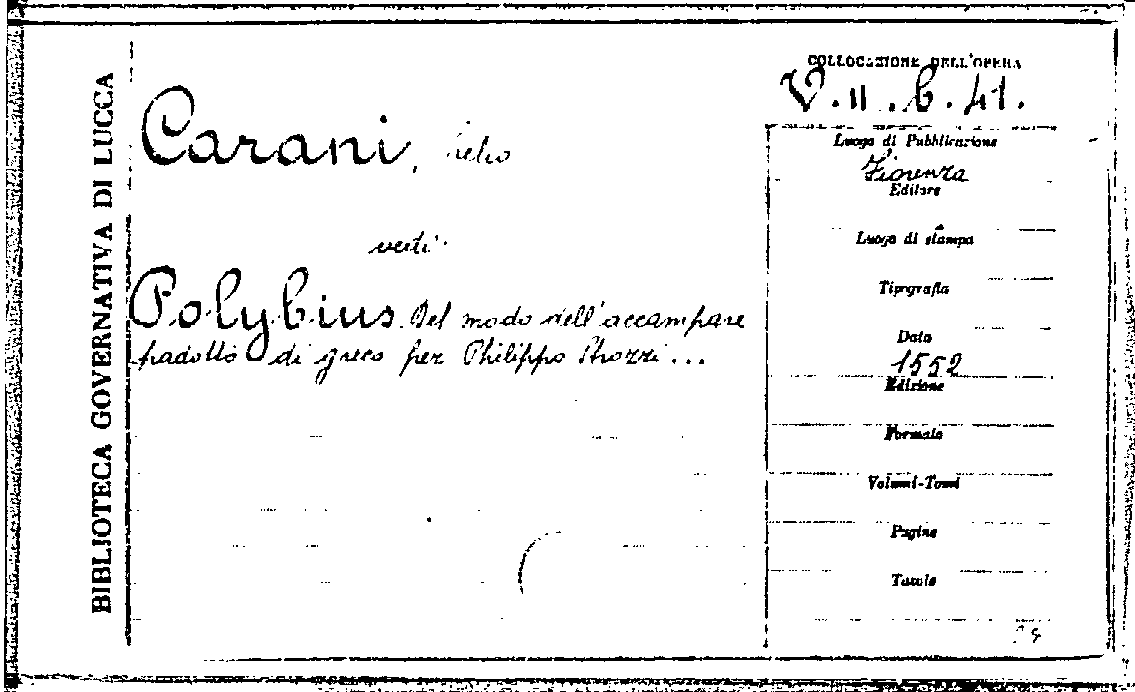 BIBLIOTECA GOVERNATIVA DI LUCCA
COLLOCAZIONE DELL'OPERA
V.II.b.41.
Carani, Lelio
verti
Polybius. Del modo dell'accampare
tradotto di greco per Philippo Strozzi...
Luogo di Pubblicazione
Fiorenza
Editore
Luogo di stampa
Tipografia
Data
1552
Edizione
Formato
Volumi-Tomi
Pagine
Tavole